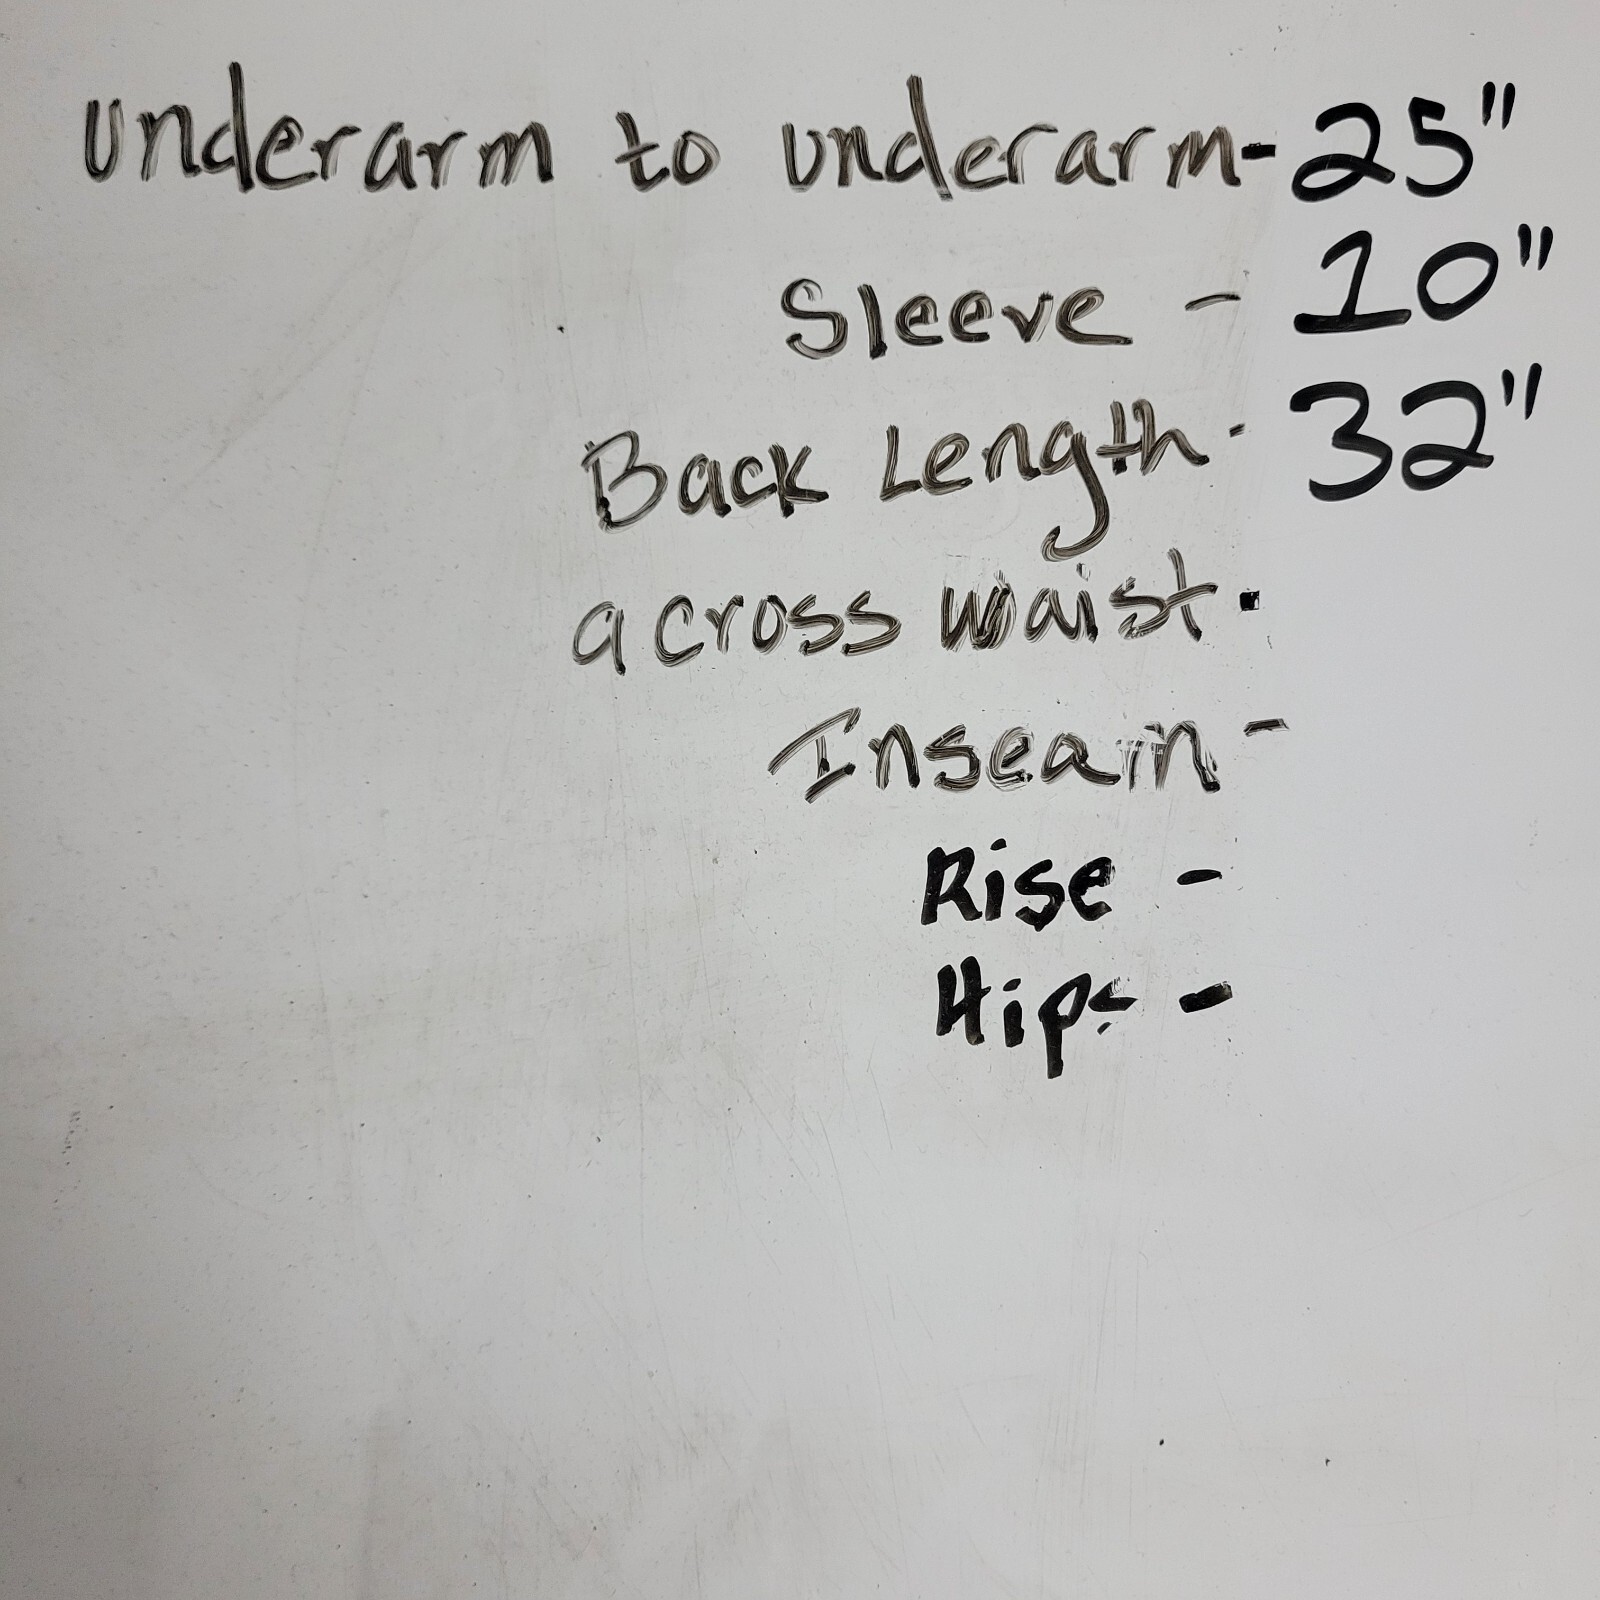 underarm to underarm- 25"
Sleeve - 10"
Back Length- 32"
across waist-
Inseam -
Rise -
Hips -